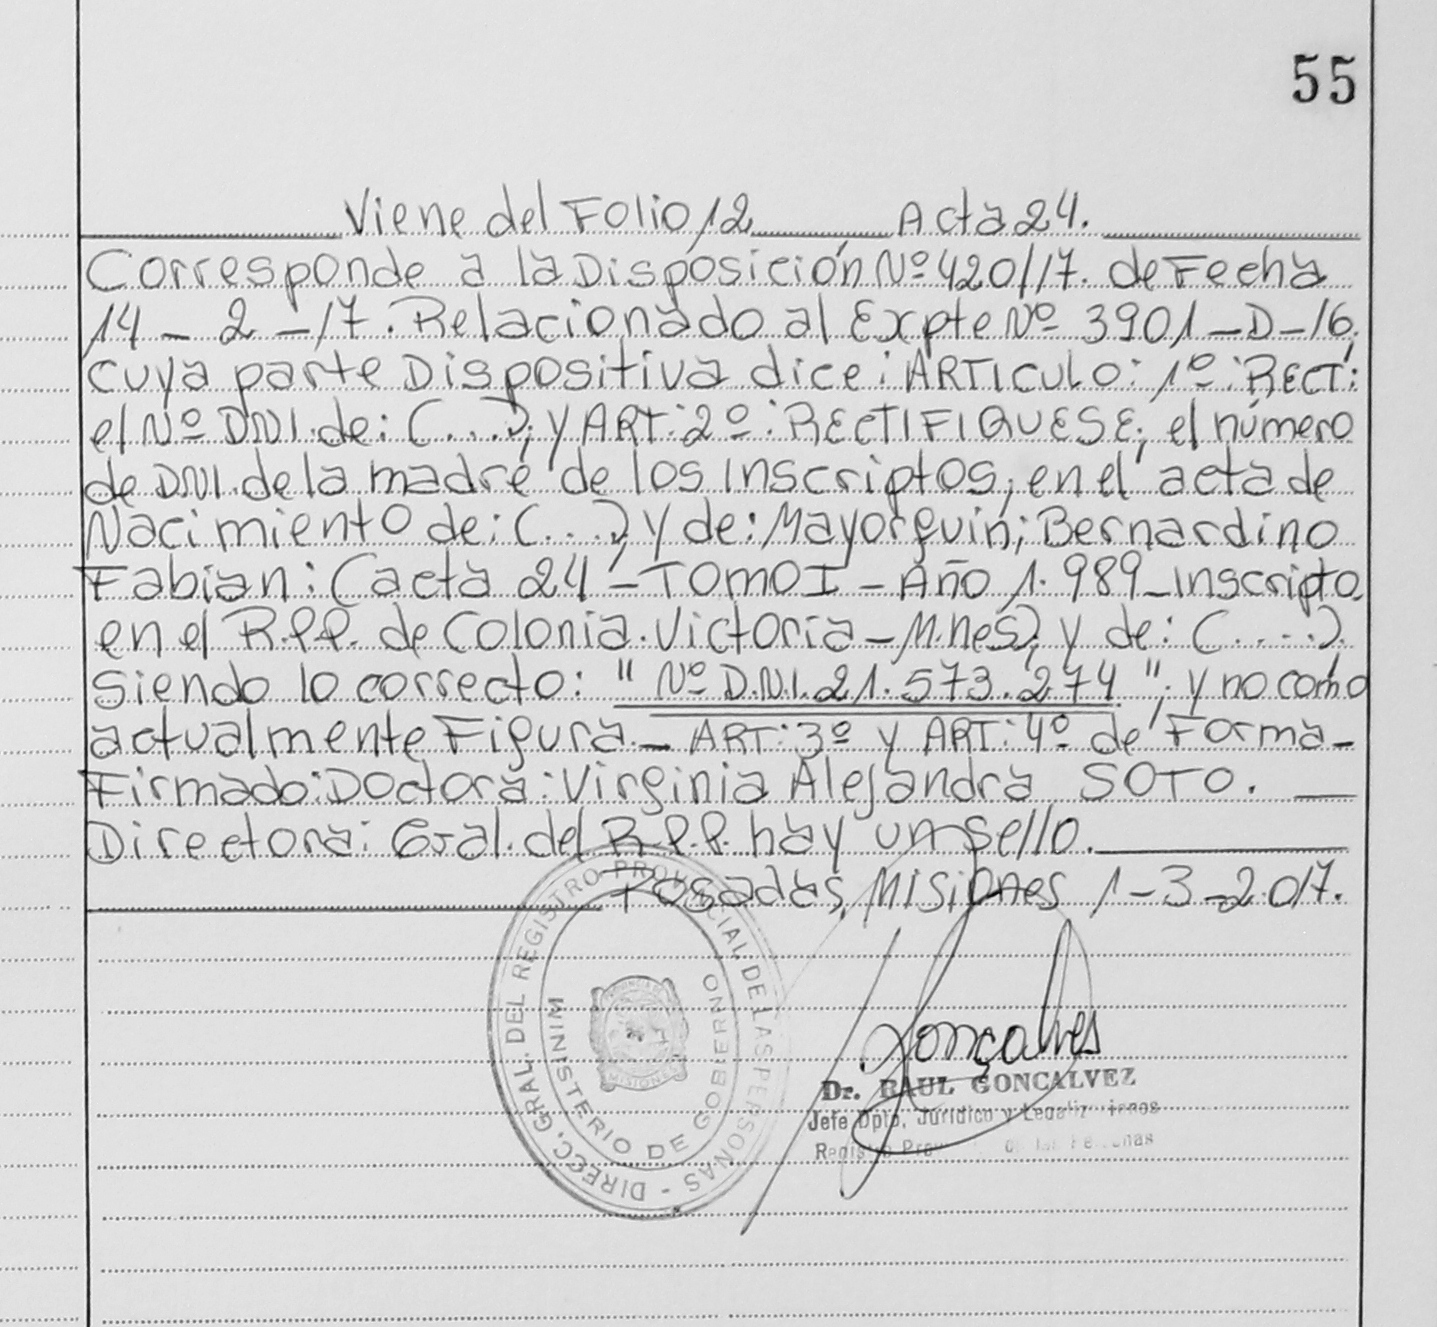 55
Viene del Folio 12 Acta 24.
Corresponde a la Disposición Nº 420/17. de Fecha
14 - 2 - 17. Relacionado al Expte Nº 3901-D-16.
cuya parte Dispositiva dice: ARTICULO: 1º: RECT:
el Nº DNI. de: (...); y ART: 2º: RECTIFIQUESE; el número
de DNI. de la madre de los Inscriptos; en el acta de
Nacimiento de: (...) y de: Mayorguin; Bernardino
Fabian: (acta 24 - TOMO I - Año 1.989_Inscripto
en el R.P.P. de Colonia. Victoria - M.nes); y de: (....).
Siendo lo correcto: "Nº D.N.I. 21.573.274"; y no como
actualmente Figura. - ART: 3º y ART: 4º de Forma -
Firmado: Doctora: Virginia Alejandra SOTO.
Directora: Gral. del R.P.P. hay un sello.
Posadas, Misiones 1-3-2.017.
DIRECC. GRAL. DEL REGISTRO PROVINCIAL DE LAS PERSONAS -
MINISTERIO DE GOBIERNO
MISIONES
Gonçalves
Dr. RAUL GONCALVEZ
Jefe Dpto. Jurídico y Legalizaciones
Registro de las Personas